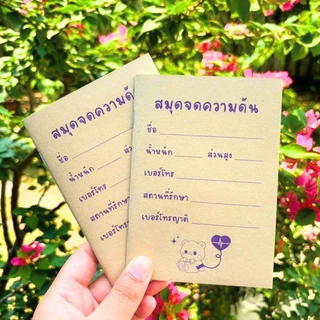 สมุดจดความดัน
ชื่อ
น้ำหนัก ส่วนสูง
เบอร์โทร
สถานที่รักษา
เบอร์โทรญาติ
สมุดจดความดัน
ชื่อ
น้ำหนัก ส่วน
เบอร์โทร
สถานที่รักษา
เบอร์โทรญาติ